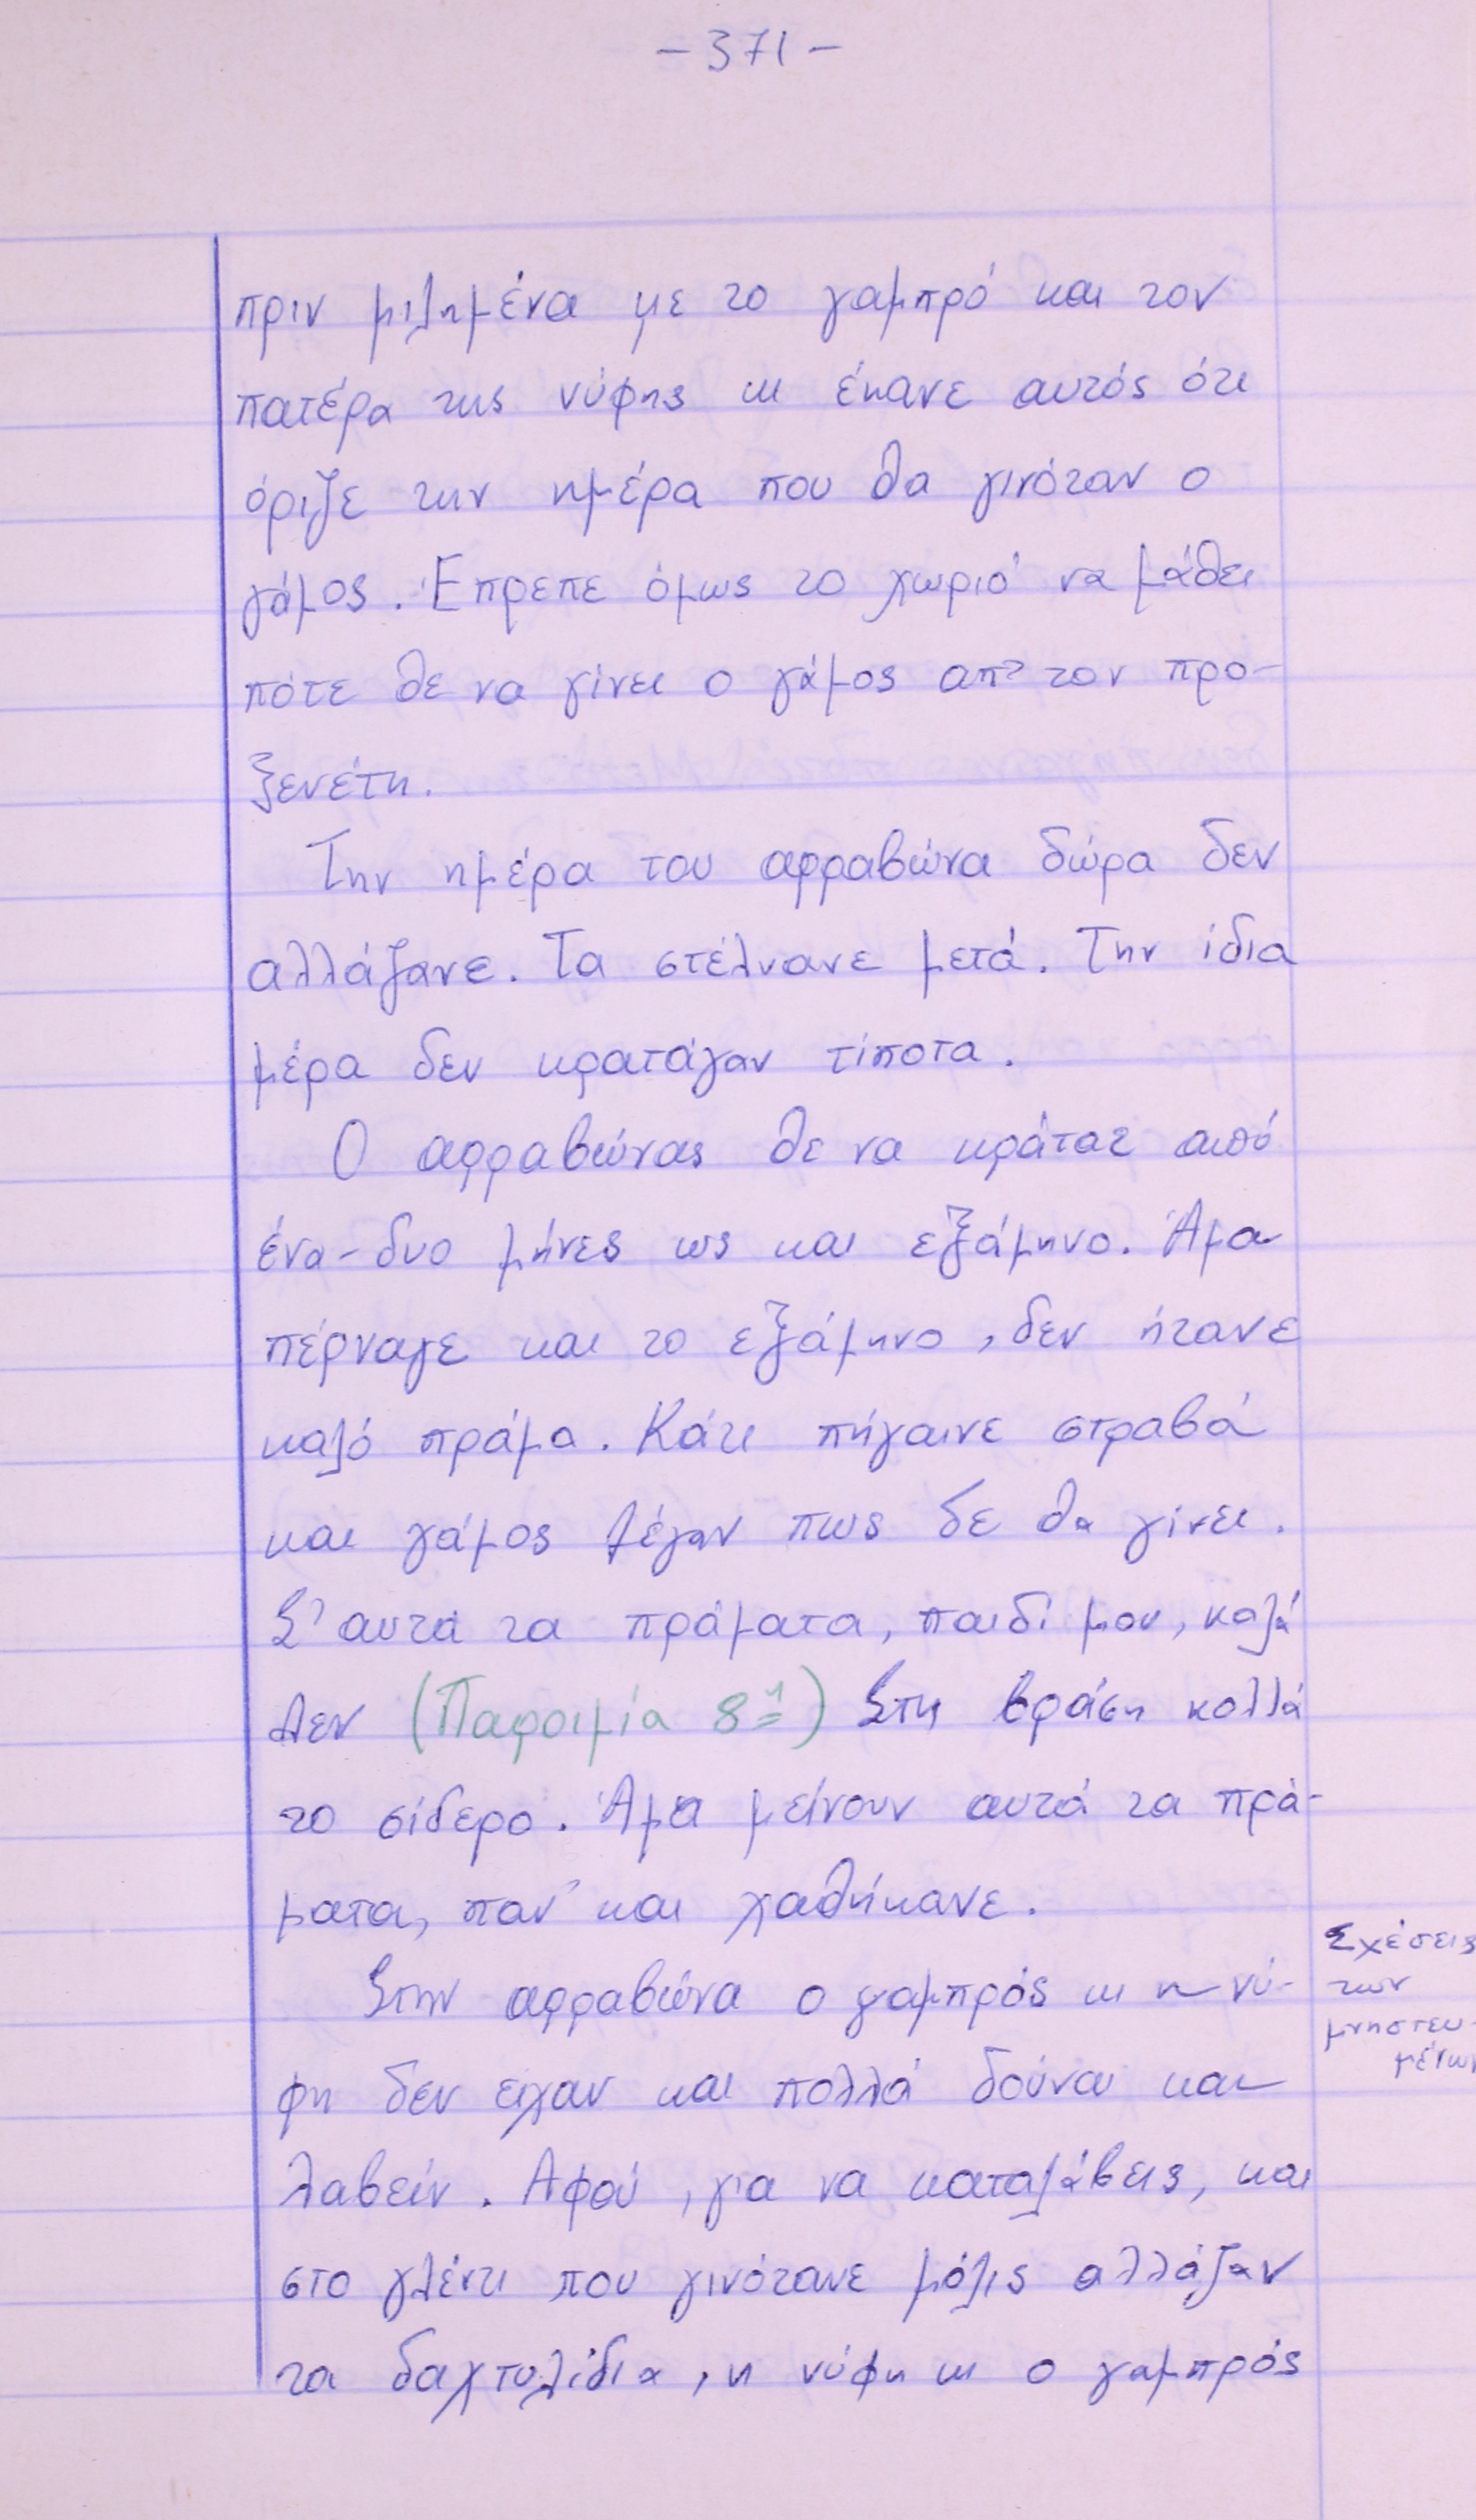 - 371 -
πριν μιλημένα με το γαμπρό και τον
πατέρα της νύφης κι έκανε αυτός ότι
όριζε την ημέρα που θα γινόταν ο
γάμος. Έπρεπε όμως το χωριό να μάθει
πότε θε να γίνει ο γάμος απ' τον προ-
ξενέτη.
Την ημέρα του αρραβώνα δώρα δεν
αλλάζανε. Τα στέλνανε μετά. Την ίδια
μέρα δεν κρατάγαν τίποτα.
Ο αρραβώνας θε να κράταε από
ένα-δυο μήνες ως και εξάμηνο. Άμα
πέρναγε και το εξάμηνο, δεν ήτανε
καλό πράμα. Κάτι πήγαινε στραβά
και γάμος λέγαν πως δε θα γίνει.
Σ' αυτά τα πράματα, παιδί μου, καλά
λεν (Παροιμία 8η) Στη βράση κολλά
το σίδερο. Άμα μείνουν αυτά τα πρά-
ματα, παν' και χαθήκανε.
Στην αρραβώνα ο γαμπρός κι η νύ-
φη δεν είχαν και πολλά δούναι και
λαβείν. Αφού, για να καταλάβεις, και
στο γλέντι που γινότανε μόλις αλλάζαν
τα δαχτυλίδια, η νύφη κι ο γαμπρός
Σχέσεις
των
μνηστευ-
μένων